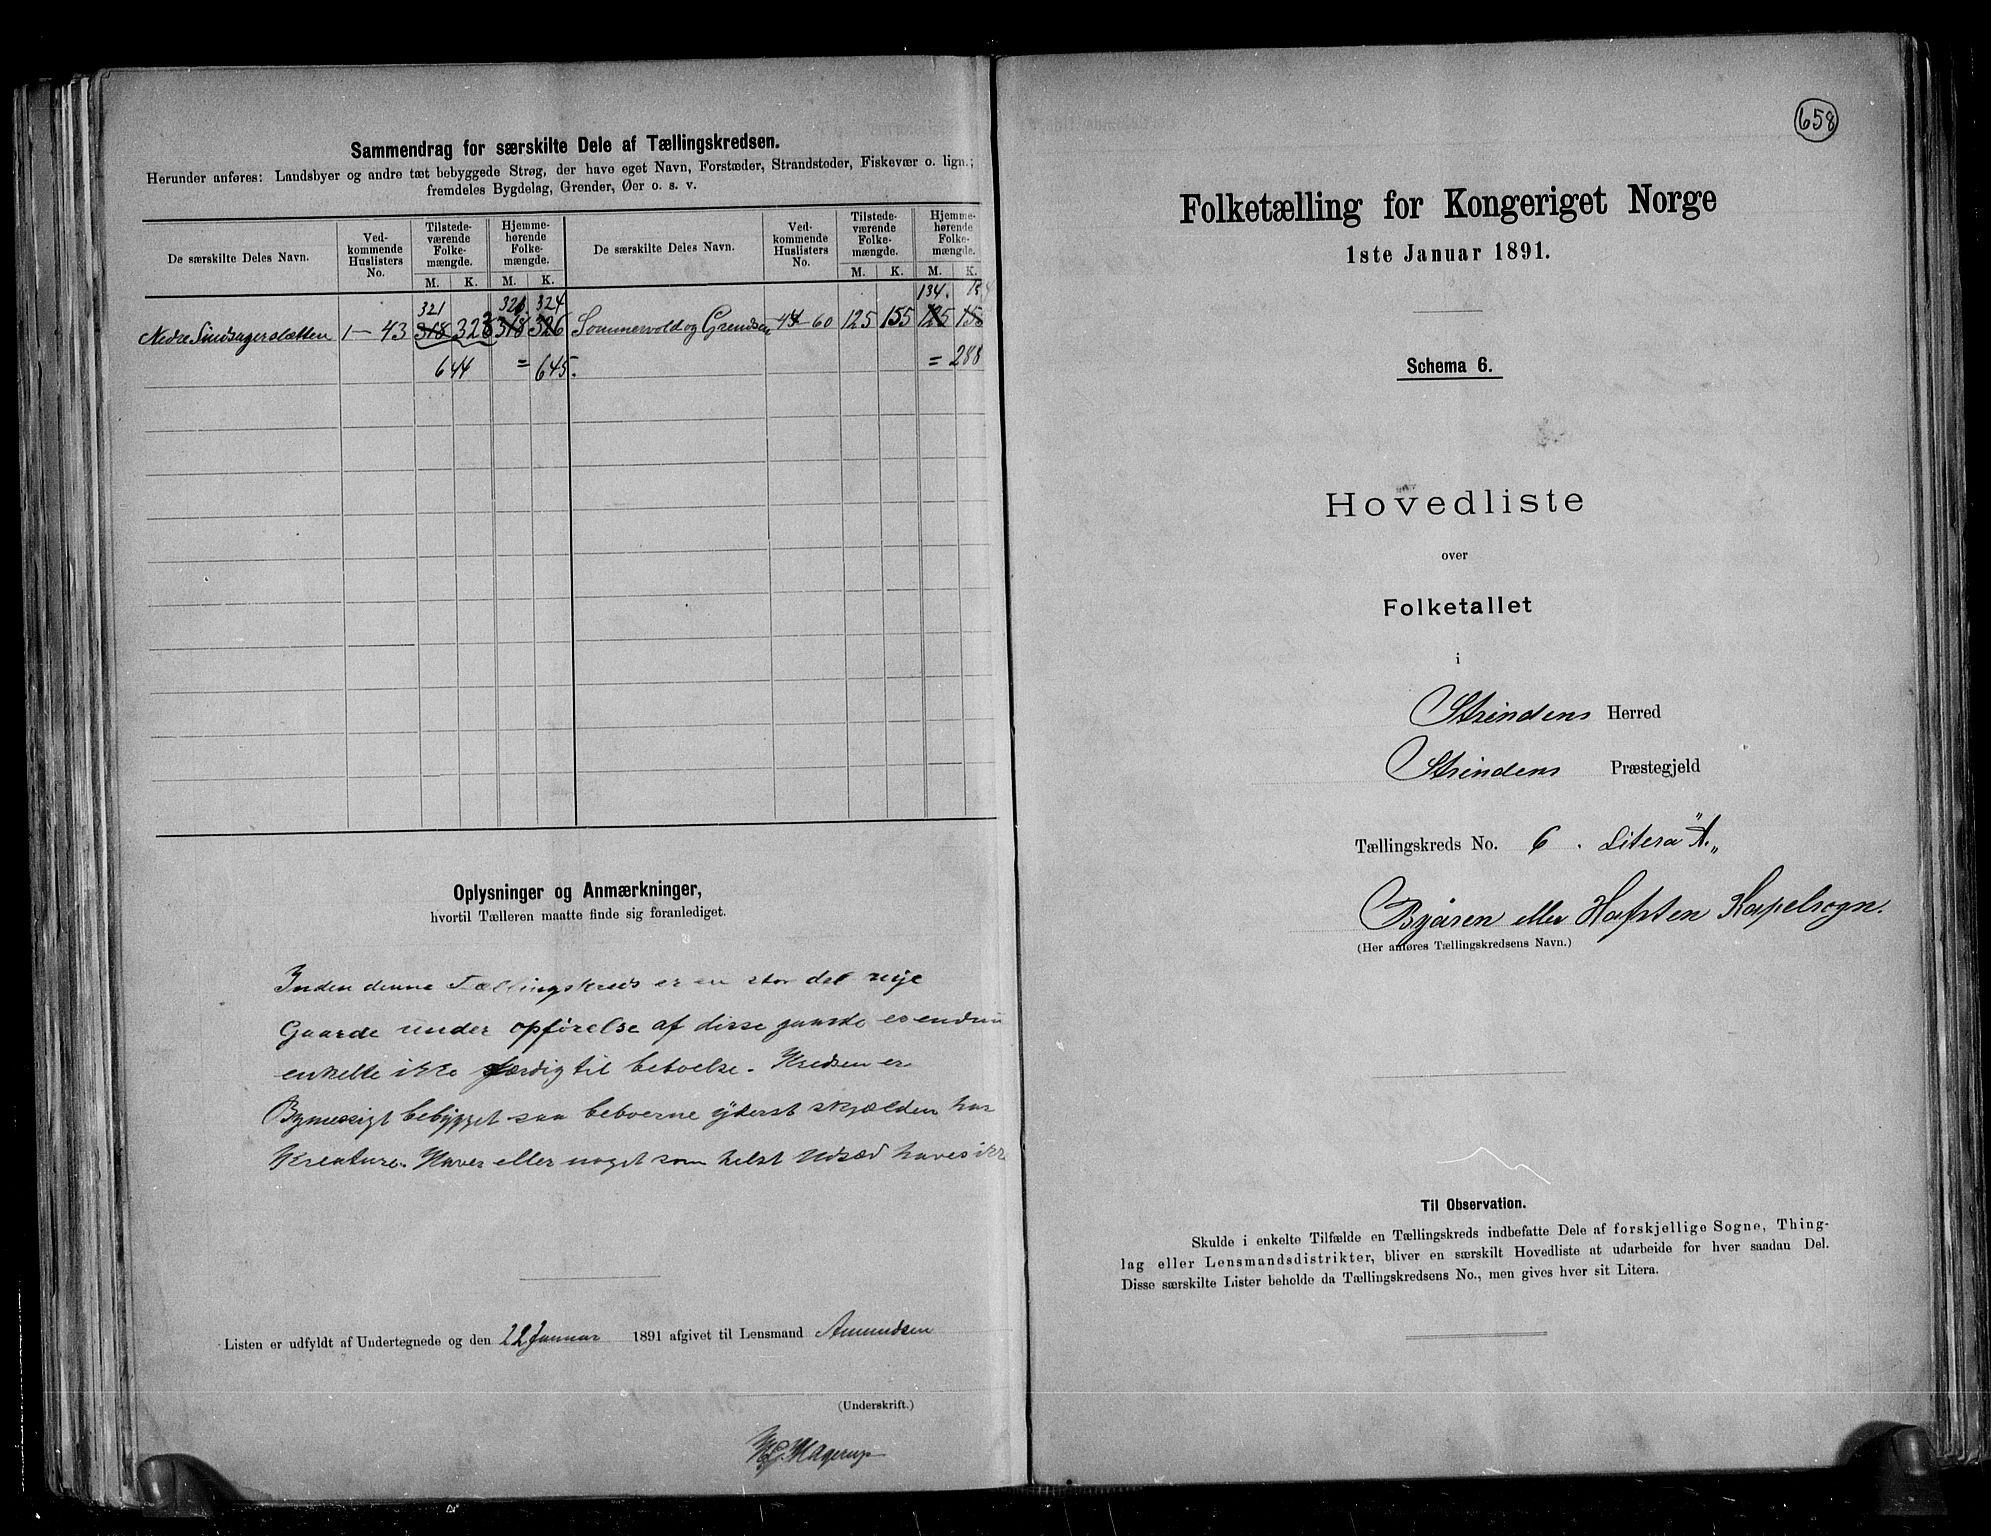 Sammendrag for særskilte Dele af Tællingskredsen.
Herunder anføres: Landsbyer og andre tæt bebyggede Strøg, der have eget Navn, Forstæder, Strandsteder, Fiskevær o. lign.;
fremdeles Bygdelag, Grender, Øer o. s. v.
De særskilte Deles Navn.
Ved-
kommende
Huslisters
No.
Tilstede-
værende
Folke-
mængde.
Hjemme-
hørende
Folke-
mængde.
De særskilte Deles Navn.
Ved-
kommende
Huslisters
No.
Tilstede-
værende
Folke-
mængde.
Hjemme-
hørende
Folke-
mængde.
M. K. M. K. M. K. M. K.
321 321 324 134. 154
Nedre 1–43 318 323 318 326 Sommervold og Grendsen 44–60 125 155 125 155
644 = 645. = 288
Oplysninger og Anmærkninger,
hvortil Tælleren maatte finde sig foranlediget.
Inden denne Tællingskreds er en stor del nye
Gaarde under opførelse af disse ganske er endnu
enkelte ikke færdig til beboelse. Kredsen er
Bymessigt bebygget saa beboerne yderst skjælden har
Kreature. Haver eller noget som helst Udsæd haves ikke
Listen er udfyldt af Undertegnede og den 22 Januar 1891 afgivet til Lensmand Amundsen
(Underskrift.)
Hagerup
658
Folketælling for Kongeriget Norge
1ste Januar 1891.
Schema 6.
Hovedliste
over
Folketallet
i
Strindens Herred
Strindens Præstegjeld
Tællingskreds No. 6. Litera "A„
Byåsen eller Hafsten Kapelsogn.
(Her anføres Tællingskredsens Navn.)
Til Observation.
Skulde i enkelte Tilfælde en Tællingskreds indbefatte Dele af forskjellige Sogne, Thing-
lag eller Lensmandsdistrikter, bliver en særskilt Hovedliste at udarbeide for hver saadan Del.
Disse særskilte Lister beholde da Tællingskredsens No., men gives hver sit Litera.